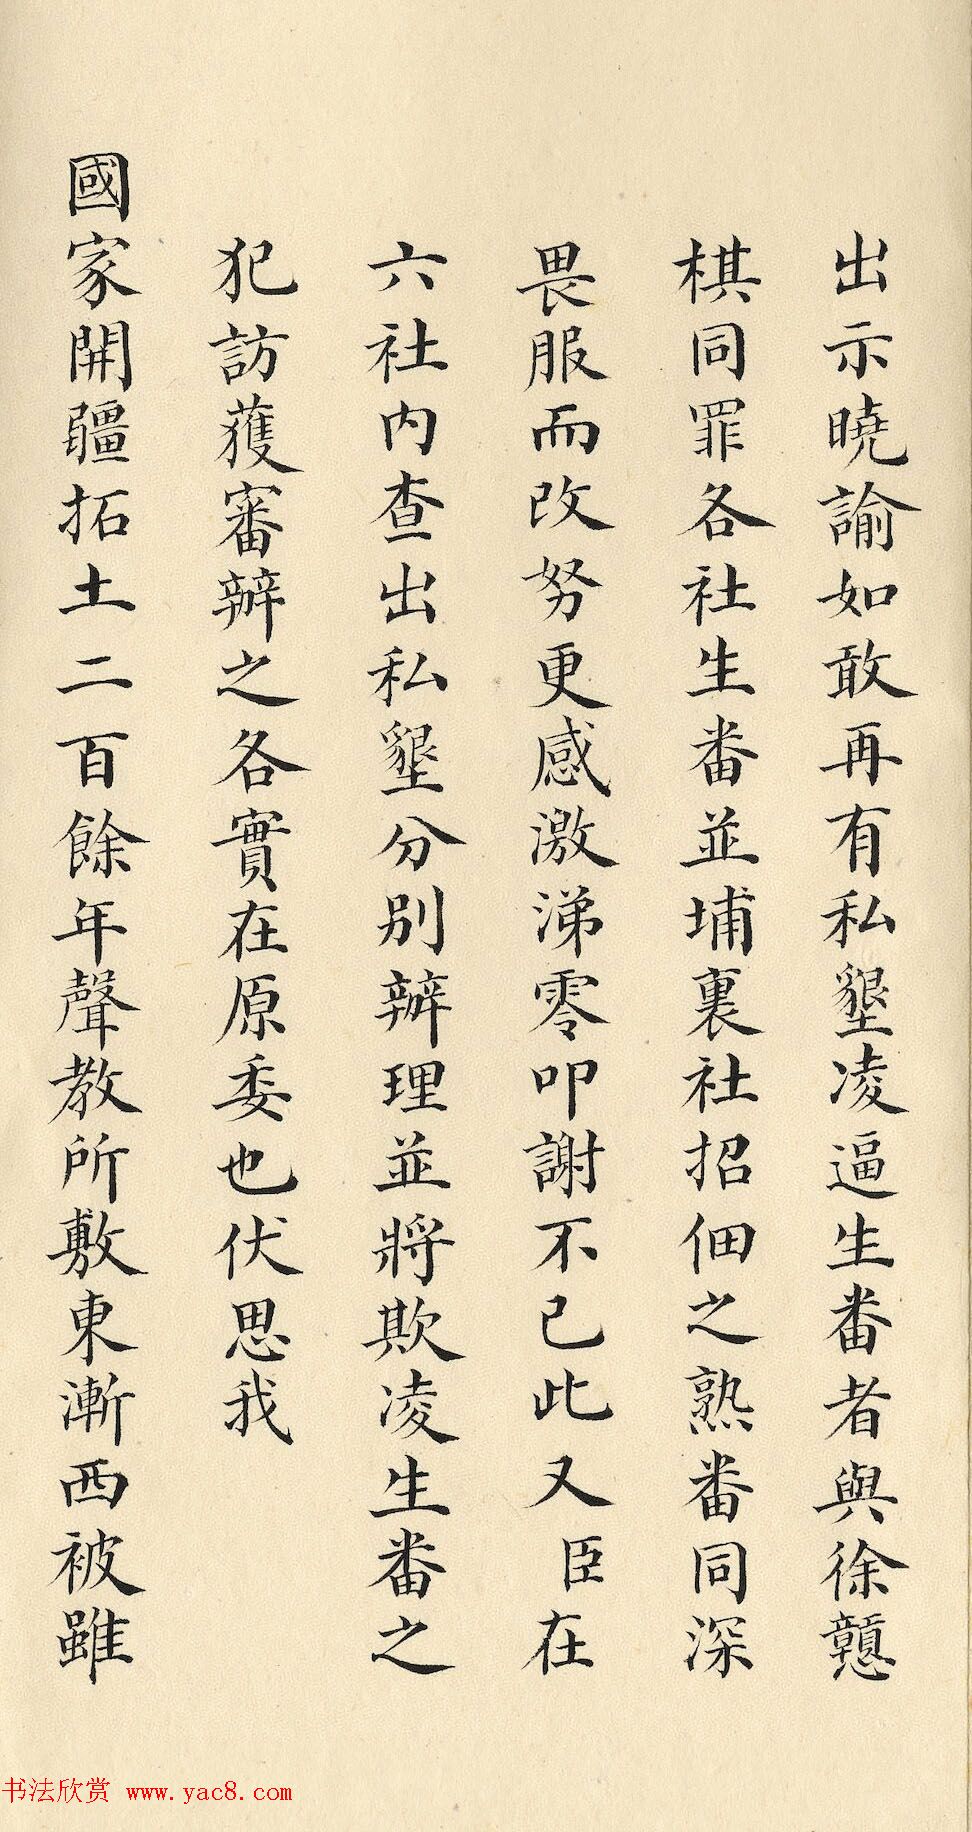 出示曉諭如敢再有私墾凌逼生番者與徐戇
棋同罪各社生番並埔裏社招佃之熟番同深
畏服而改努更感激涕零叩謝不已此又臣在
六社内查出私墾分别辦理並將欺凌生番之
犯訪獲審辦之各實在原委也伏思我
國家開疆拓土二百餘年聲教所敷東漸西被雖
书法欣赏 www.yac8.com